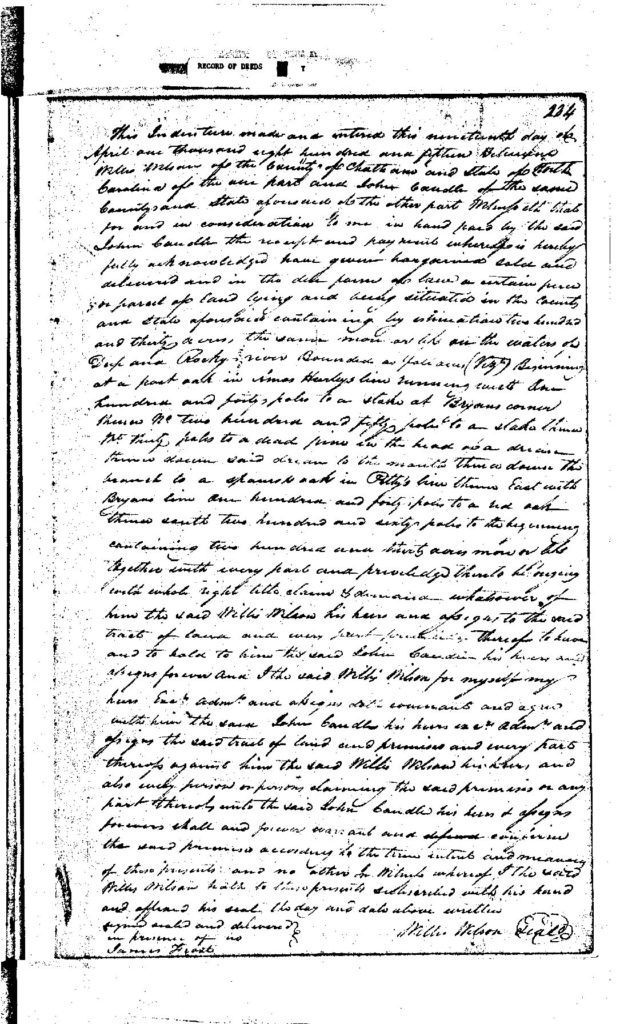 RECORD OF DEEDS Y
224
This Indenture made and entered this nineteenth day of
April one thousand eight hundred and fifteen Between
Willis Wilson of the County of Chatham and State of North
Carolina of the one part and John Caudle of the same
County and State aforesaid of the other part Witnesseth that
for and in consideration to me in hand paid by the said
John Caudle the receipt and payment whereof is hereby
fully acknowledged have given bargained sold and
delivered and in the due form of law a certain piece
or parcel of land lying and being situated in the County
and State aforesaid containing by estimation two hundred
and thirty acres the same more or less on the waters of
Deep and Rocky river Bounded as follows (Viz) Beginning
at a post oak in Hurleys line running west One
hundred and forty poles to a stake at Bryans corner
thence No two hundred and fifty poles to a stake thence
thirty poles to a dead pine in the head of a drean
thence down said drean to the mouth thence down the
branch to a spanish oak in line thence East with
Bryans line One hundred and forty poles to a red oak
thence south two hundred and sixty poles to the beginning
containing two hundred and thirty acres more or less
together with every part and priviledge thereto belonging
with whole right title claim & demand whatsoever of
him the said Willis Wilson his heirs and assigns to the said
tract of land and every part thereof to have
and to hold to him the said John Caudle his heirs and
assigns forever And I the said Willis Wilson for myself my
heirs Exrs Admrs and assigns doth covenant and agree
with him the said John Caudle his heirs exrs Admrs and
assigns the said tract of land and premises and every part
thereof against him the said Willis Wilson his heirs and
also every person or persons claiming the said premises or any
part thereof unto the said John Caudle his heirs & assigns
forever shall and forever warrant and defend
the said premises according to the true intent and meaning
of these presents and no other In Witness whereof I the said
Willis Wilson hath to these presents subscribed with his hand
and affixed his seal the day and date above written
signed sealed and delivered
in presence of us
Willis Wilson Seal
James